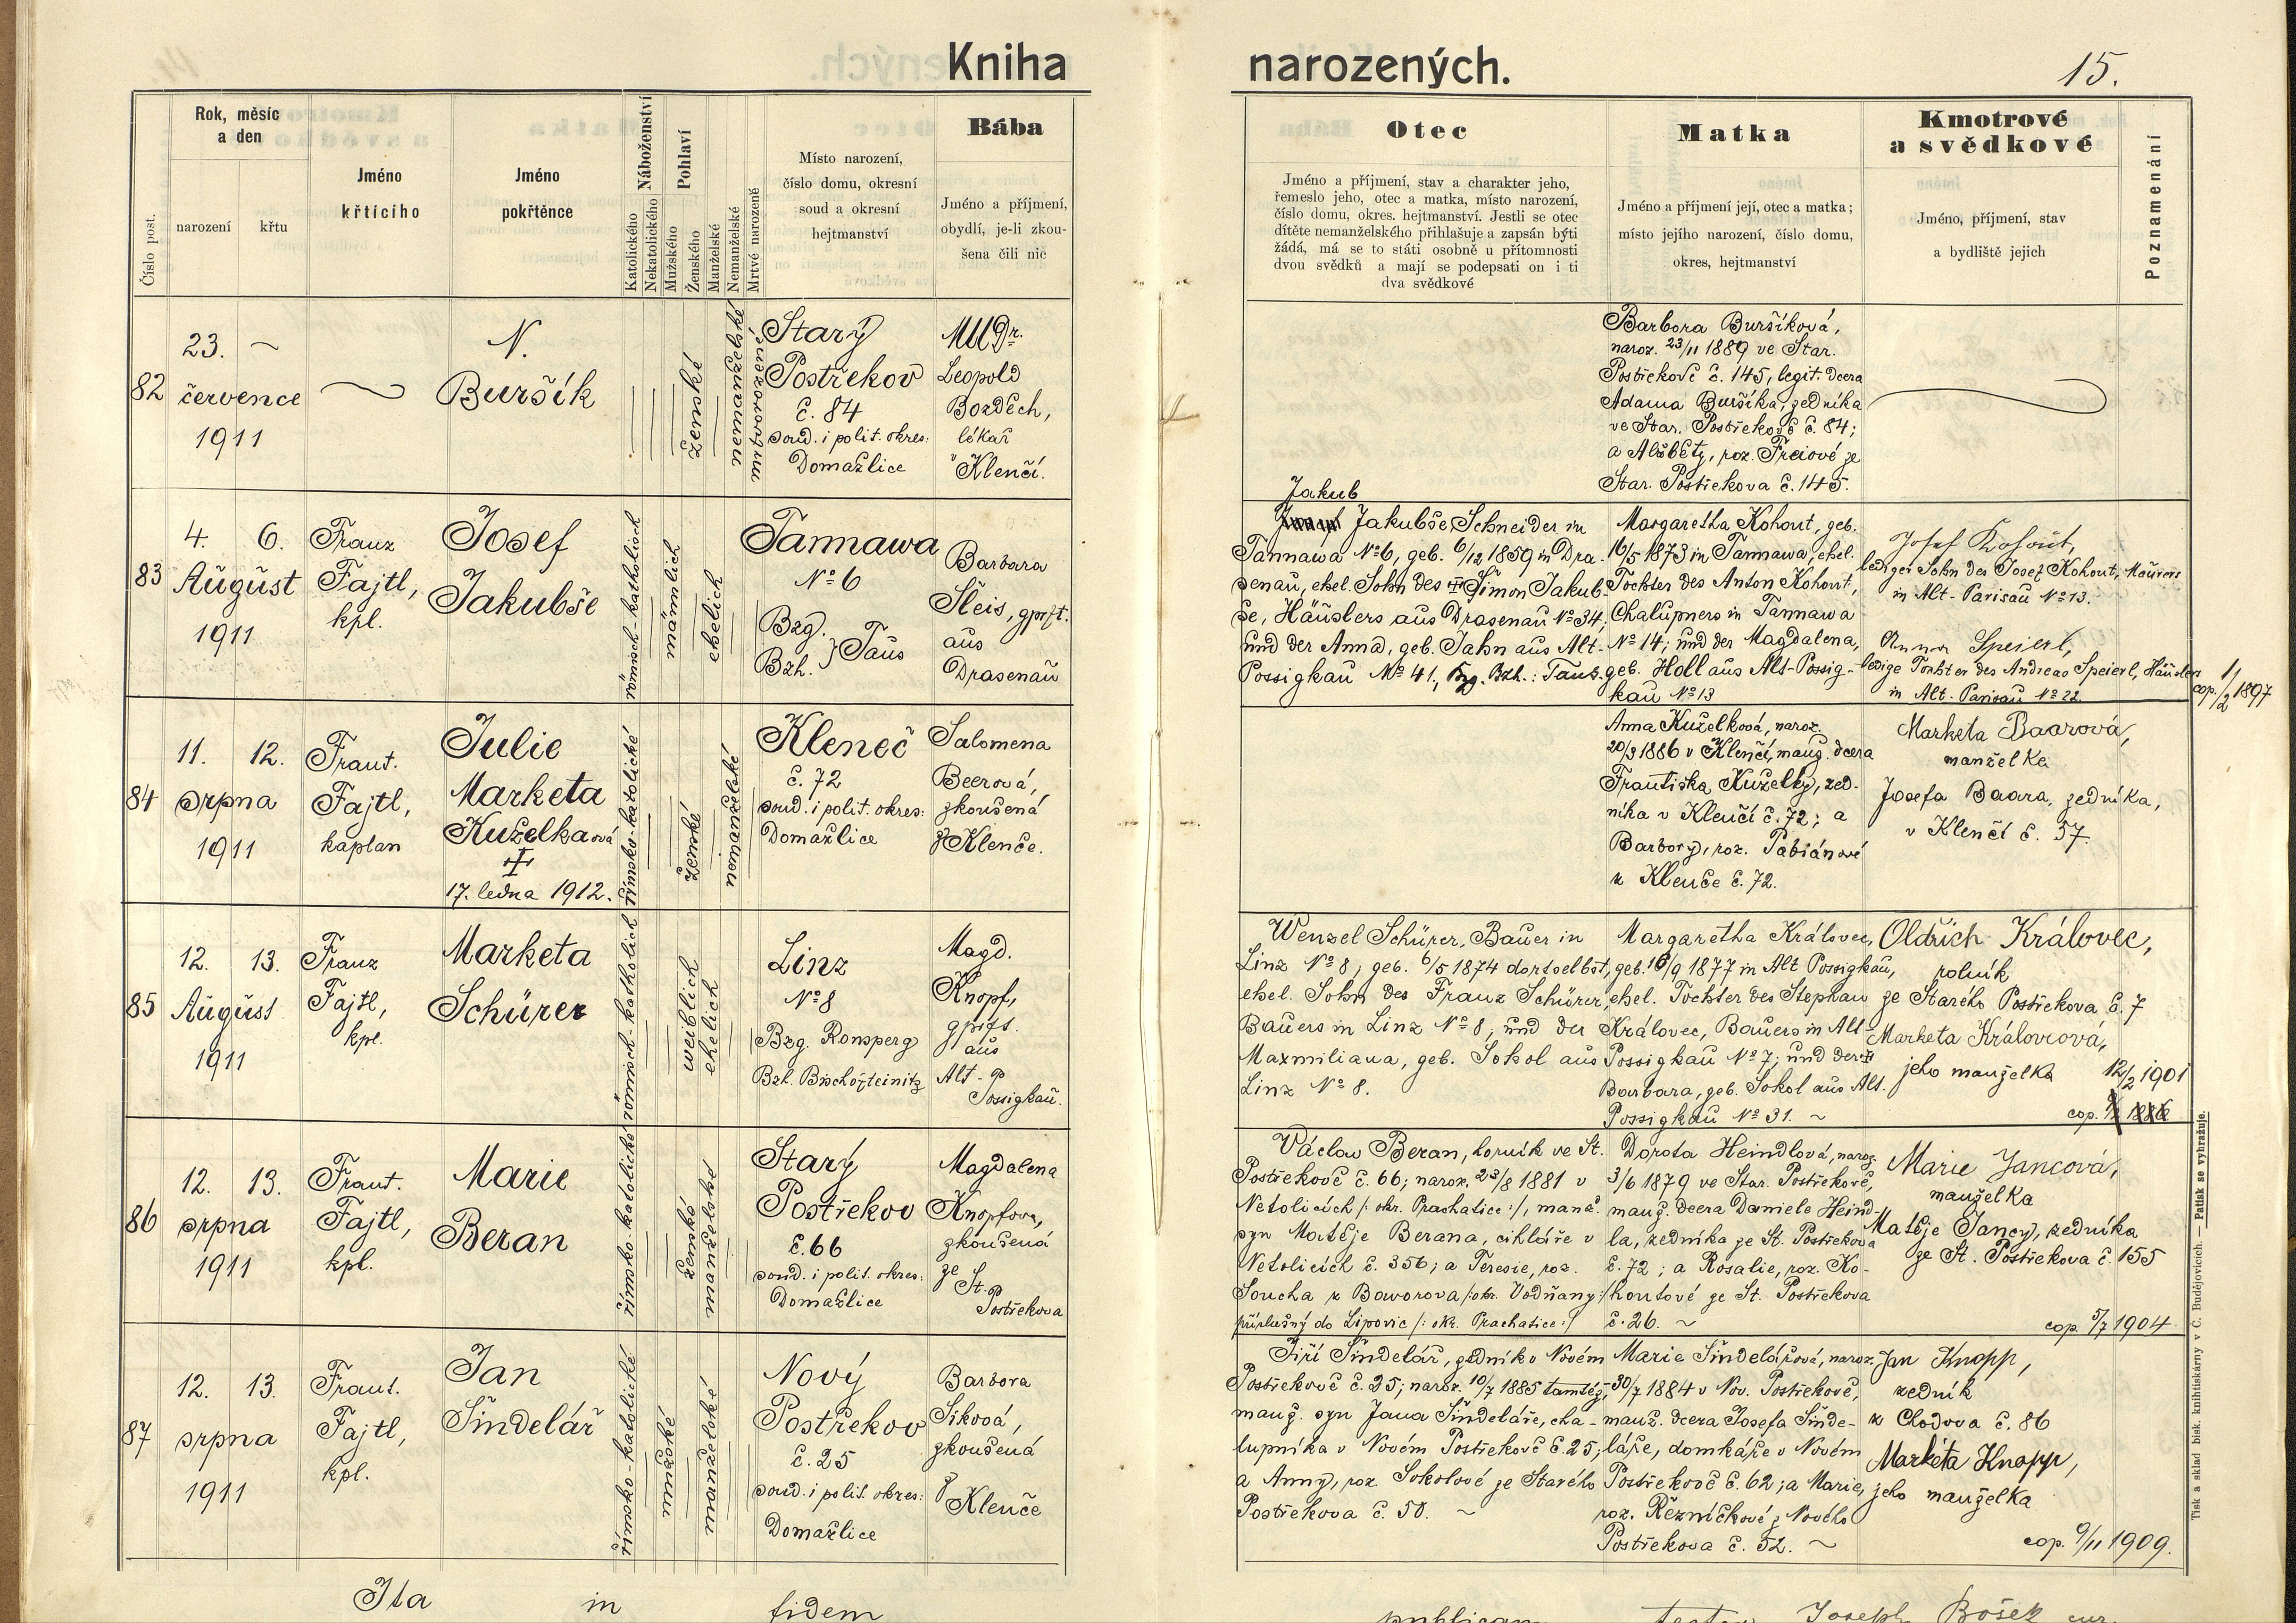 Kniha narozených.
15.
Číslo post.
Rok, měsíc
a den
narození
křtu
Jméno
křtícího
Jméno
pokřtěnce
Náboženství
Katolického
Nekatolického
Pohlaví
Mužského
Ženského
Manželské
Nemanželské
Mrtvě narozené
Místo narození,
číslo domu, okresní
soud a okresní
hejtmanství
Bába
Jméno a příjmení,
obydlí, je-li zkou-
šena čili nic
Otec
Jméno a příjmení, stav a charakter jeho,
řemeslo jeho, otec a matka, místo narození,
číslo domu, okres. hejtmanství. Jestli se otec
dítěte nemanželského přihlašuje a zapsán býti
žádá, má se to státi osobně u přítomnosti
dvou svědků a mají se podepsati on i ti
dva svědkové
Matka
Jméno a příjmení její, otec a matka;
místo jejího narození, číslo domu,
okres, hejtmanství
Kmotrové
a svědkové
Jméno, příjmení, stav
a bydliště jejich
Poznamenání
82
23. ~
července
1911
N.
Buršík
ženské
nemanželské
mrtvorozené
Starý
Postřekov
č. 84
soud. i polit. okres:
Domažlice
MUDr.
Leopold
Bozděch,
lékař
v Klenčí.
Barbora Buršíková,
naroz. 23/11 1889 ve Star.
Postřekově č. 145, legit. dcera
Adama Buršíka, zedníka
ve Star. Postřekově č. 84;
a Alžběty, roz. Freiové ze
Star. Postřekova č. 145.
83
4. 6.
August
1911
Franz
Fajtl,
kpl.
Josef
Jakubše
römisch-katholisch
männlich
ehelich
Tannawa
No 6
Bzg.
Bzh. } Taus
Barbara
Sleis, gprft.
aus
Drasenau
Jakub
Jakubše, Schneider in
Tannawa No 6, geb. 6/12 1859 in Dra-
senau, ehel. Sohn des Simon Jakub-
še, Häuslers aus Drasenau No 34,
und der Anna, geb. Jahn aus Alt-
Possigkau No 41, Bzg. Bzh.: Taus.
Margaretha Kohout, geb.
16/5 1873 in Tannawa, ehel.
Tochter des Anton Kohout,
Chalupners in Tannawa
No 14; und der Magdalena,
geb. Holl aus Alt-Possig-
kau No 13
Josef Kohout,
lediger Sohn des Josef Kohout, Maurers
in Alt-Parisau No 13.
Anna Speierl,
ledige Tochter des Andreas Speierl, Häusler
in Alt-Parisau No 22.
cop. 1/2 1897
84
11. 12.
srpna
1911
Frant.
Fajtl,
kaplan
Julie
Marketa
Kuželkaová
†
17. ledna 1912.
římsko-katolické
ženské
nemanželské
Kleneč
č. 72
soud. i polit. okres:
Domažlice
Salomena
Beerová,
zkoušená
z Klenče.
Anna Kuželková, naroz.
20/3 1886 v Klenčí, manž. dcera
Františka Kuželky, zed-
níka v Klenčí č. 72; a
Barbory, roz. Fabiánové
z Klenče č. 72.
Marketa Baarová,
manželka
Josefa Baara, zedníka,
v Klenčí č. 57.
85
12. 13.
August
1911
Franz
Fajtl,
kpl.
Marketa
Schürer
römisch-katholisch
weiblich
ehelich
Linz
No 8
Bzg. Ronsperg
Bzh. Bischofteinitz
Magd.
Knopf,
gprft.
aus
Alt-
Possigkau.
Wenzel Schürer, Bauer in
Linz No 8, geb. 6/5 1874 dortselbst,
ehel. Sohn des Franz Schürer,
Bauers in Linz No 8, und der
Maxmiliana, geb. Sokol aus
Linz No 8.
Margaretha Královec,
geb. 16/9 1877 in Alt Possigkau,
ehel. Tochter des Stephan
Královec, Bauers in Alt-
Possigkau No 7; und der
Barbara, geb. Sokol aus Alt.
Possigkau No 31. ~
Oldřich Královec,
rolník
ze Starého Postřekova č. 7
Marketa Královcová,
jeho manželka
12/2 1901
cop.
86
12. 13.
srpna
1911
Frant.
Fajtl,
kpl.
Marie
Beran
římsko-katolické
ženské
manželské
Starý
Postřekov
č. 66
soud. i polit. okres:
Domažlice
Magdalena
Knopfova,
zkoušená
ze
St.
Postřekova
Václav Beran, horník ve St.
Postřekově č. 66; naroz. 23/8 1881 v
Netolicích /: okr. Prachatice :/, manž.
syn Matěje Berana, cihláře v
Netolicích č. 356; a Teresie, roz.
Soucha z Bavorova /: okr. Vodňany :/
příslušný do Lipovic /: okr. Prachatice :/
Dorota Heindlová, naroz.
3/6 1879 ve Star. Postřekově,
manž. dcera Daniele Heind-
la, zedníka ze St. Postřekova
č. 72; a Rosalie, roz. Ko-
houtové ze St. Postřekova
č. 26. ~
Marie Jancová,
manželka
Matěje Jancy, zedníka
ze St. Postřekova č. 155
cop. 5/7 1904
87
12. 13.
srpna
1911
Frant.
Fajtl,
kpl.
Jan
Šindelář
římsko-katolické
mužské
manželské
Nový
Postřekov
č. 25
soud. i polit. okres:
Domažlice
Barbora
Siková,
zkoušená
z
Klenče
Jiří Šindelář, zedník v Novém
Postřekově č. 25; naroz. 10/7 1885 tamtéž,
manž. syn Jana Šindeláře, cha-
lupníka v Novém Postřekově č. 25;
a Anny, roz. Sokolové ze Starého
Postřekova č. 50. ~
Marie Šindelářová, naroz.
30/7 1884 v Nov. Postřekově,
manž. dcera Josefa Šinde-
láře, domkáře v Novém
Postřekově č. 62; a Marie,
roz. Řezníčkové z Nového
Postřekova č. 52. ~
Jan Knopp,
zedník
z Chodova č. 86
Markéta Knopp,
jeho manželka
cop. 9/11 1909.
Ita in fidem
publicam testor Joseph Bošek cur.
Tisk a sklad bisk. knihtiskárny v Č. Budějovicích. — Patisk se vyhražuje.